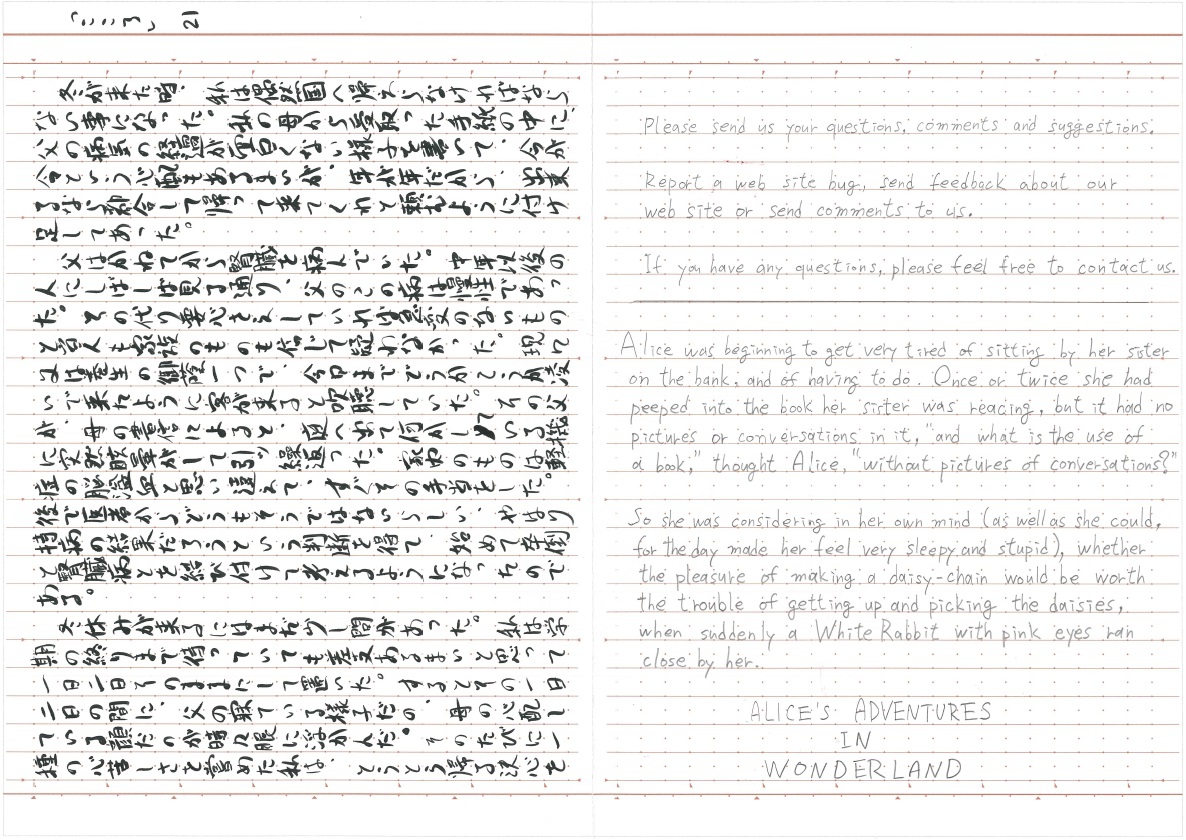 「こころ」 21
冬が来た時、私は偶然国へ帰えらなければなら
ない事になった。私の母から受取った手紙の中に、
父の病気の経過が面白くない様子を書いて、今が
今という心配もあるまいが、年が年だから、出来
るなら都合して帰って来てくれと頼むように付け
足してあった。
父はかねてから腎臓を病んでいた。中年以後の
人にしばしば見る通り、父のこの病は慢性であっ
た。その代り要心さえしていれば急変のないもの
と当人も家族のものも信じて疑わなかった。現に
父は養生の御蔭一つで、今日までどうかこうか凌
いで来たように客が来ると吹聴していた。その父
が、母の書信によると、庭へ出て何かしている機
に突然眩暈がして引ッ繰返った。家内のものは軽
症の脳溢血と思い違えて、すぐその手当をした。
後で医者からどうもそうではないらしい、やはり
持病の結果だろうという判断を得て、始めて卒倒
と腎臓病とを結び付けて考えるようになったので
ある。
冬休みが来るにはまだ少し間があった。私は学
期の終りまで待っていても差支あるまいと思って
一日二日そのままにして置いた。するとその一日
二日の間に、父の寝ている様子だの、母の心配し
ている顔だのが時々眼に浮かんだ。そのたびに一
種の心苦しさを嘗めた私は、とうとう帰る決心を
Please send us your questions, comments and suggestions.
Report a web site bug, send feedback about our
web site or send comments to us.
If you have any questions, please feel free to contact us.
Alice was beginning to get very tired of sitting by her sister
on the bank, and of having to do. Once or twice she had
peeped into the book her sister was reading, but it had no
pictures or conversations in it, "and what is the use of
a book," thought Alice, "without pictures of conversations?"
So she was considering in her own mind (as well as she could,
for the day made her feel very sleepy and stupid), whether
the pleasure of making a daisy-chain would be worth
the trouble of getting up and picking the daisies,
when suddenly a White Rabbit with pink eyes ran
close by her.
ALICE'S ADVENTURES
IN
WONDERLAND